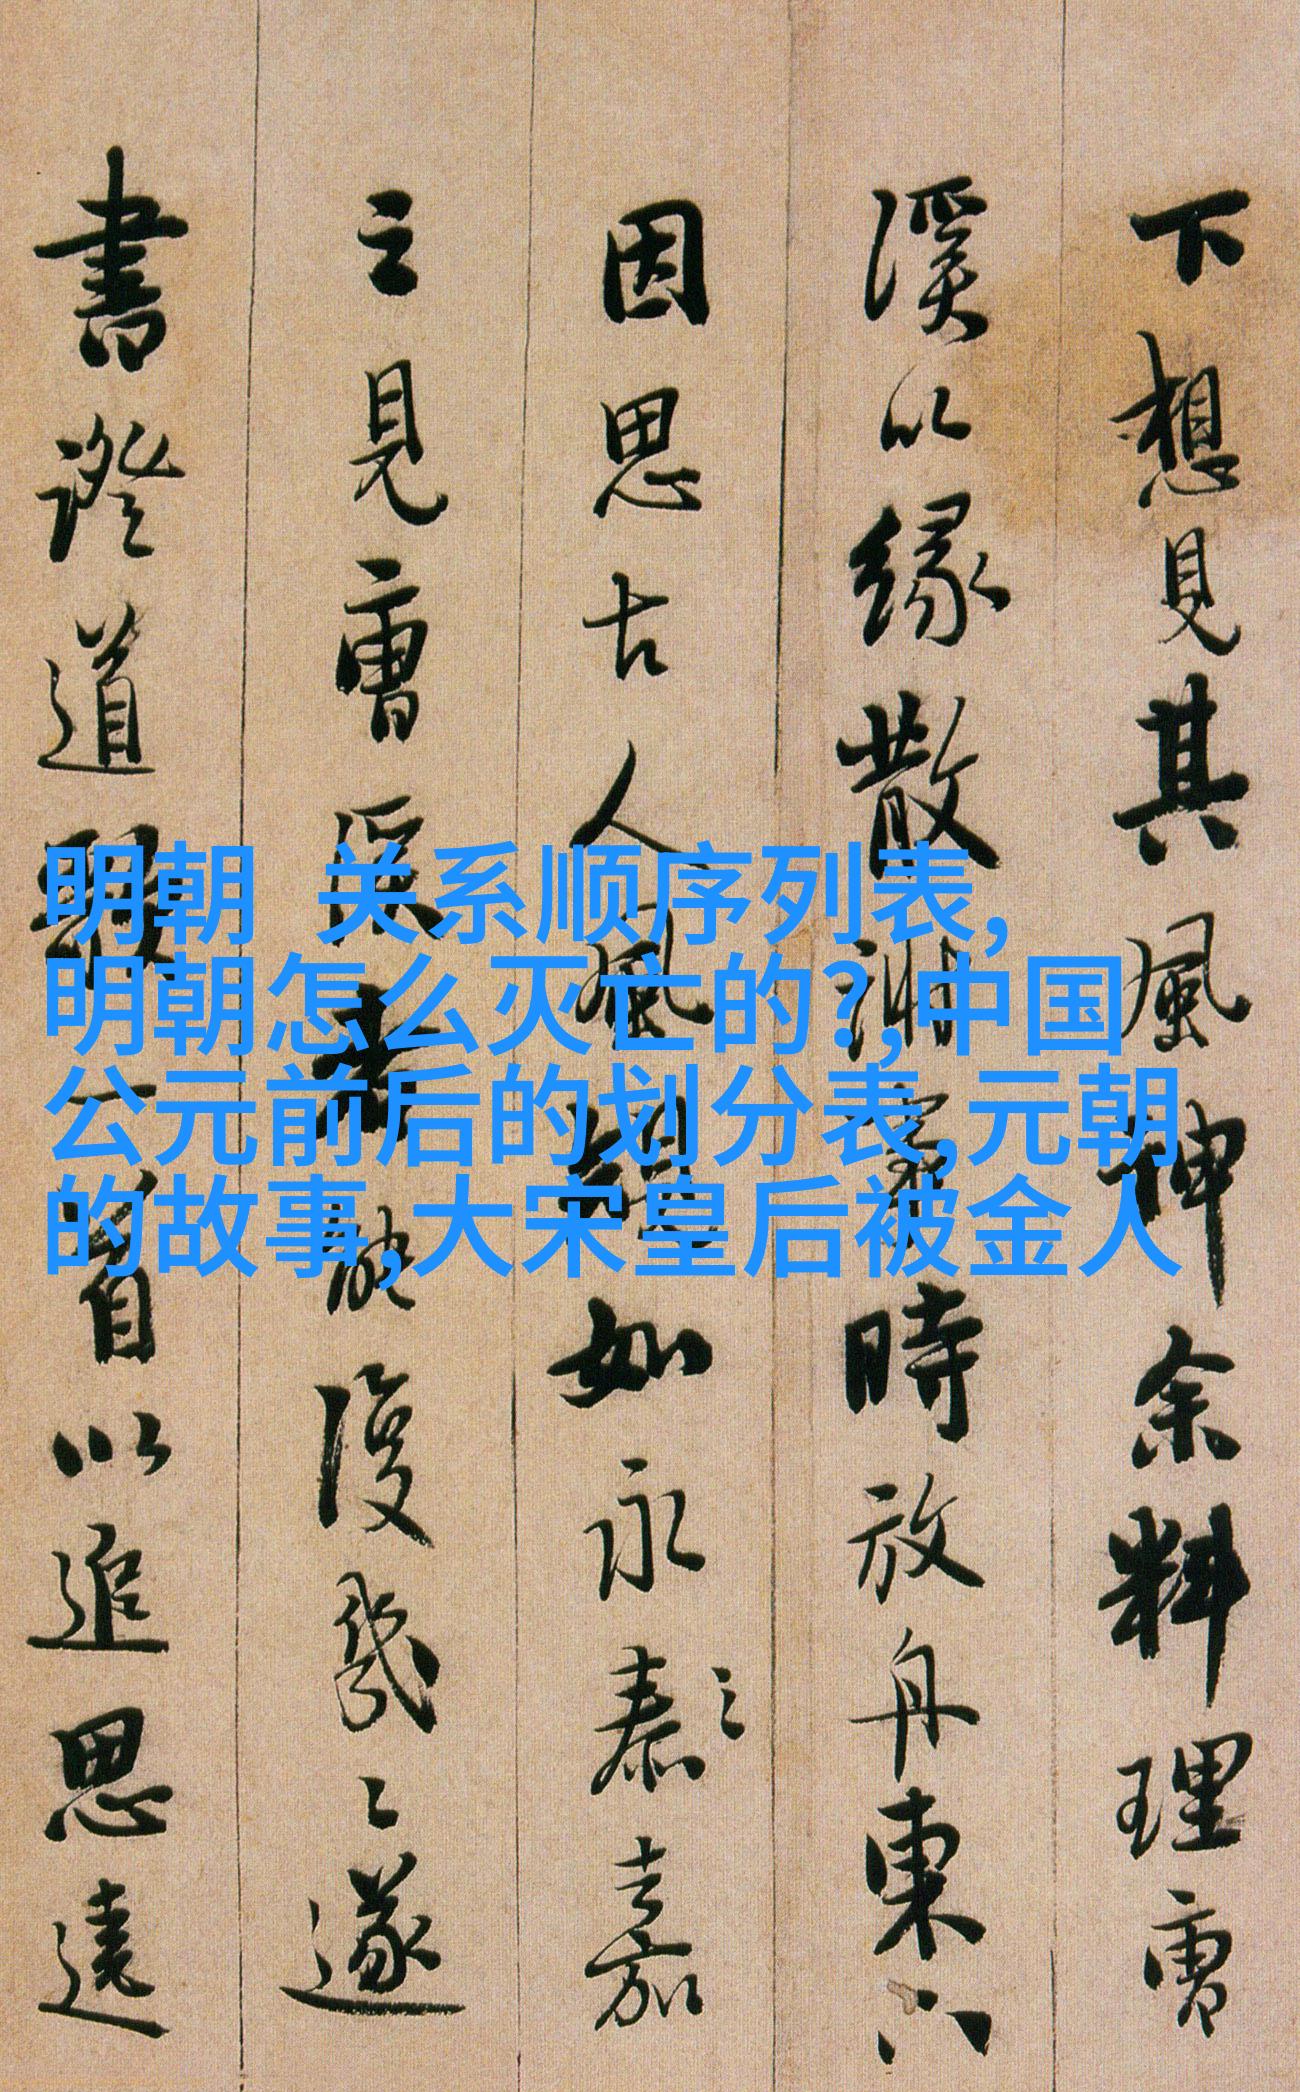 下想見其風神余料理曹
溪以緣散湘時放舟東下
因思古人風如永泰之嘉
之見曹溪者能復幾々遂
書證道歌一首以追思遠
明朝 关系顺序列表,
明朝怎么灭亡的?,中国
公元前后的划分表,元朝
的故事,大宋皇后被金人